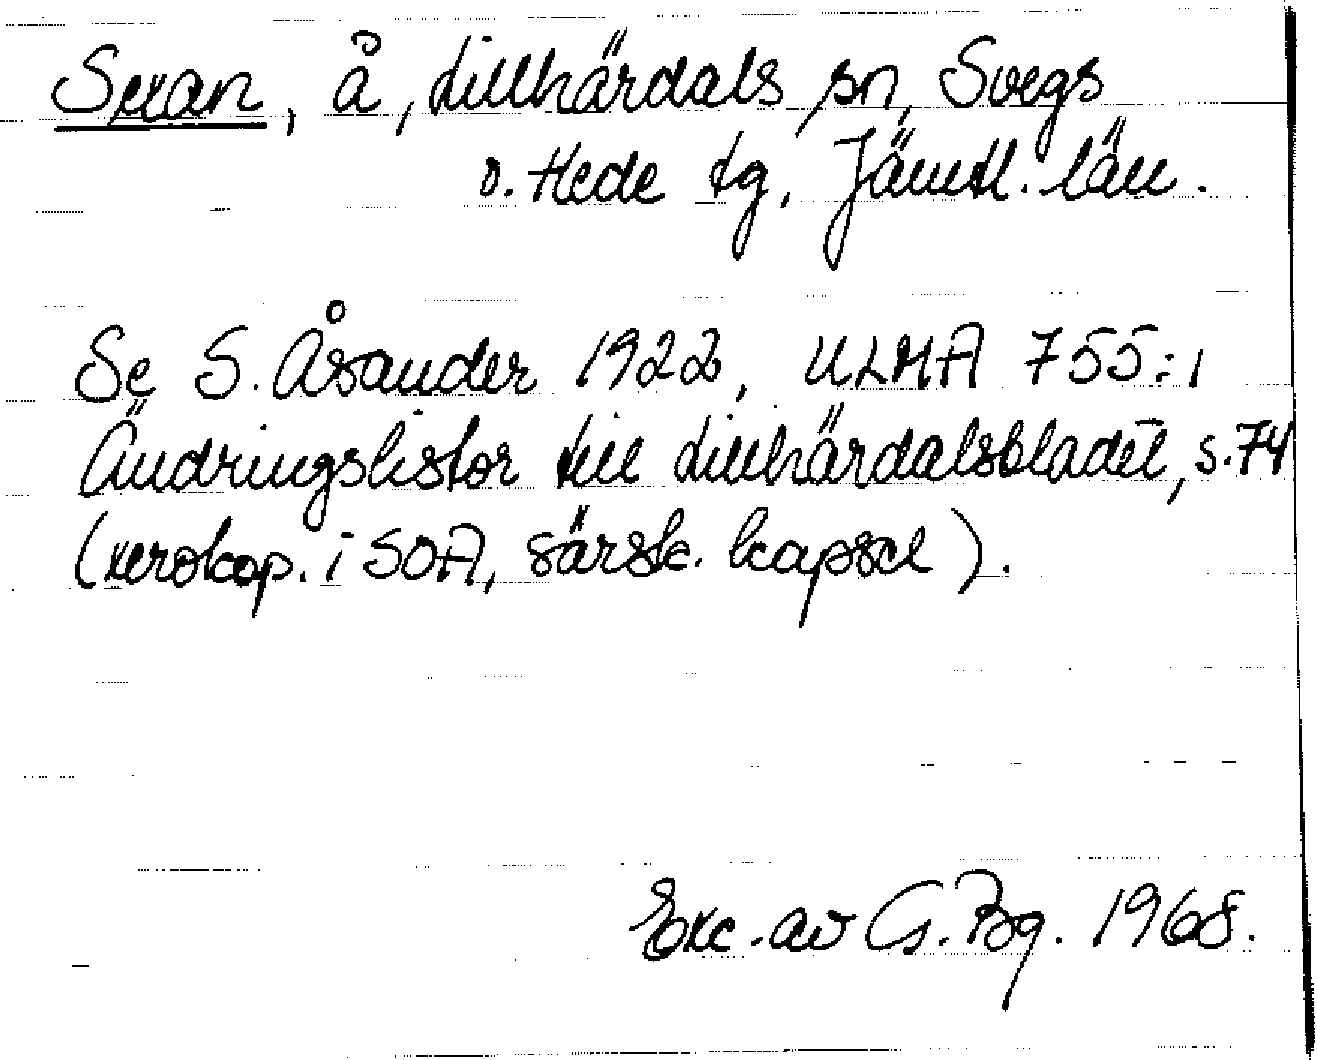 Sexan, å, Lillhärdals sn, Svegs
o. Hede tg, Jämtl. län.
Se S. Åsander 1922, ULMA 755:1
Ändringslistor till Lillhärdalsbladet, s. 74
(xerokop. i SOA, särsk. kapsel).
Exc. av G. Bg. 1968.